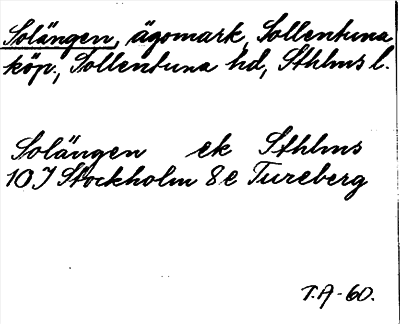 Solängen, ägomark, Sollentuna
köp., Sollentuna hd, Sthlms l.
Solängen ek Sthlms
10J Stockholm 8e Tureberg
T.A-60.